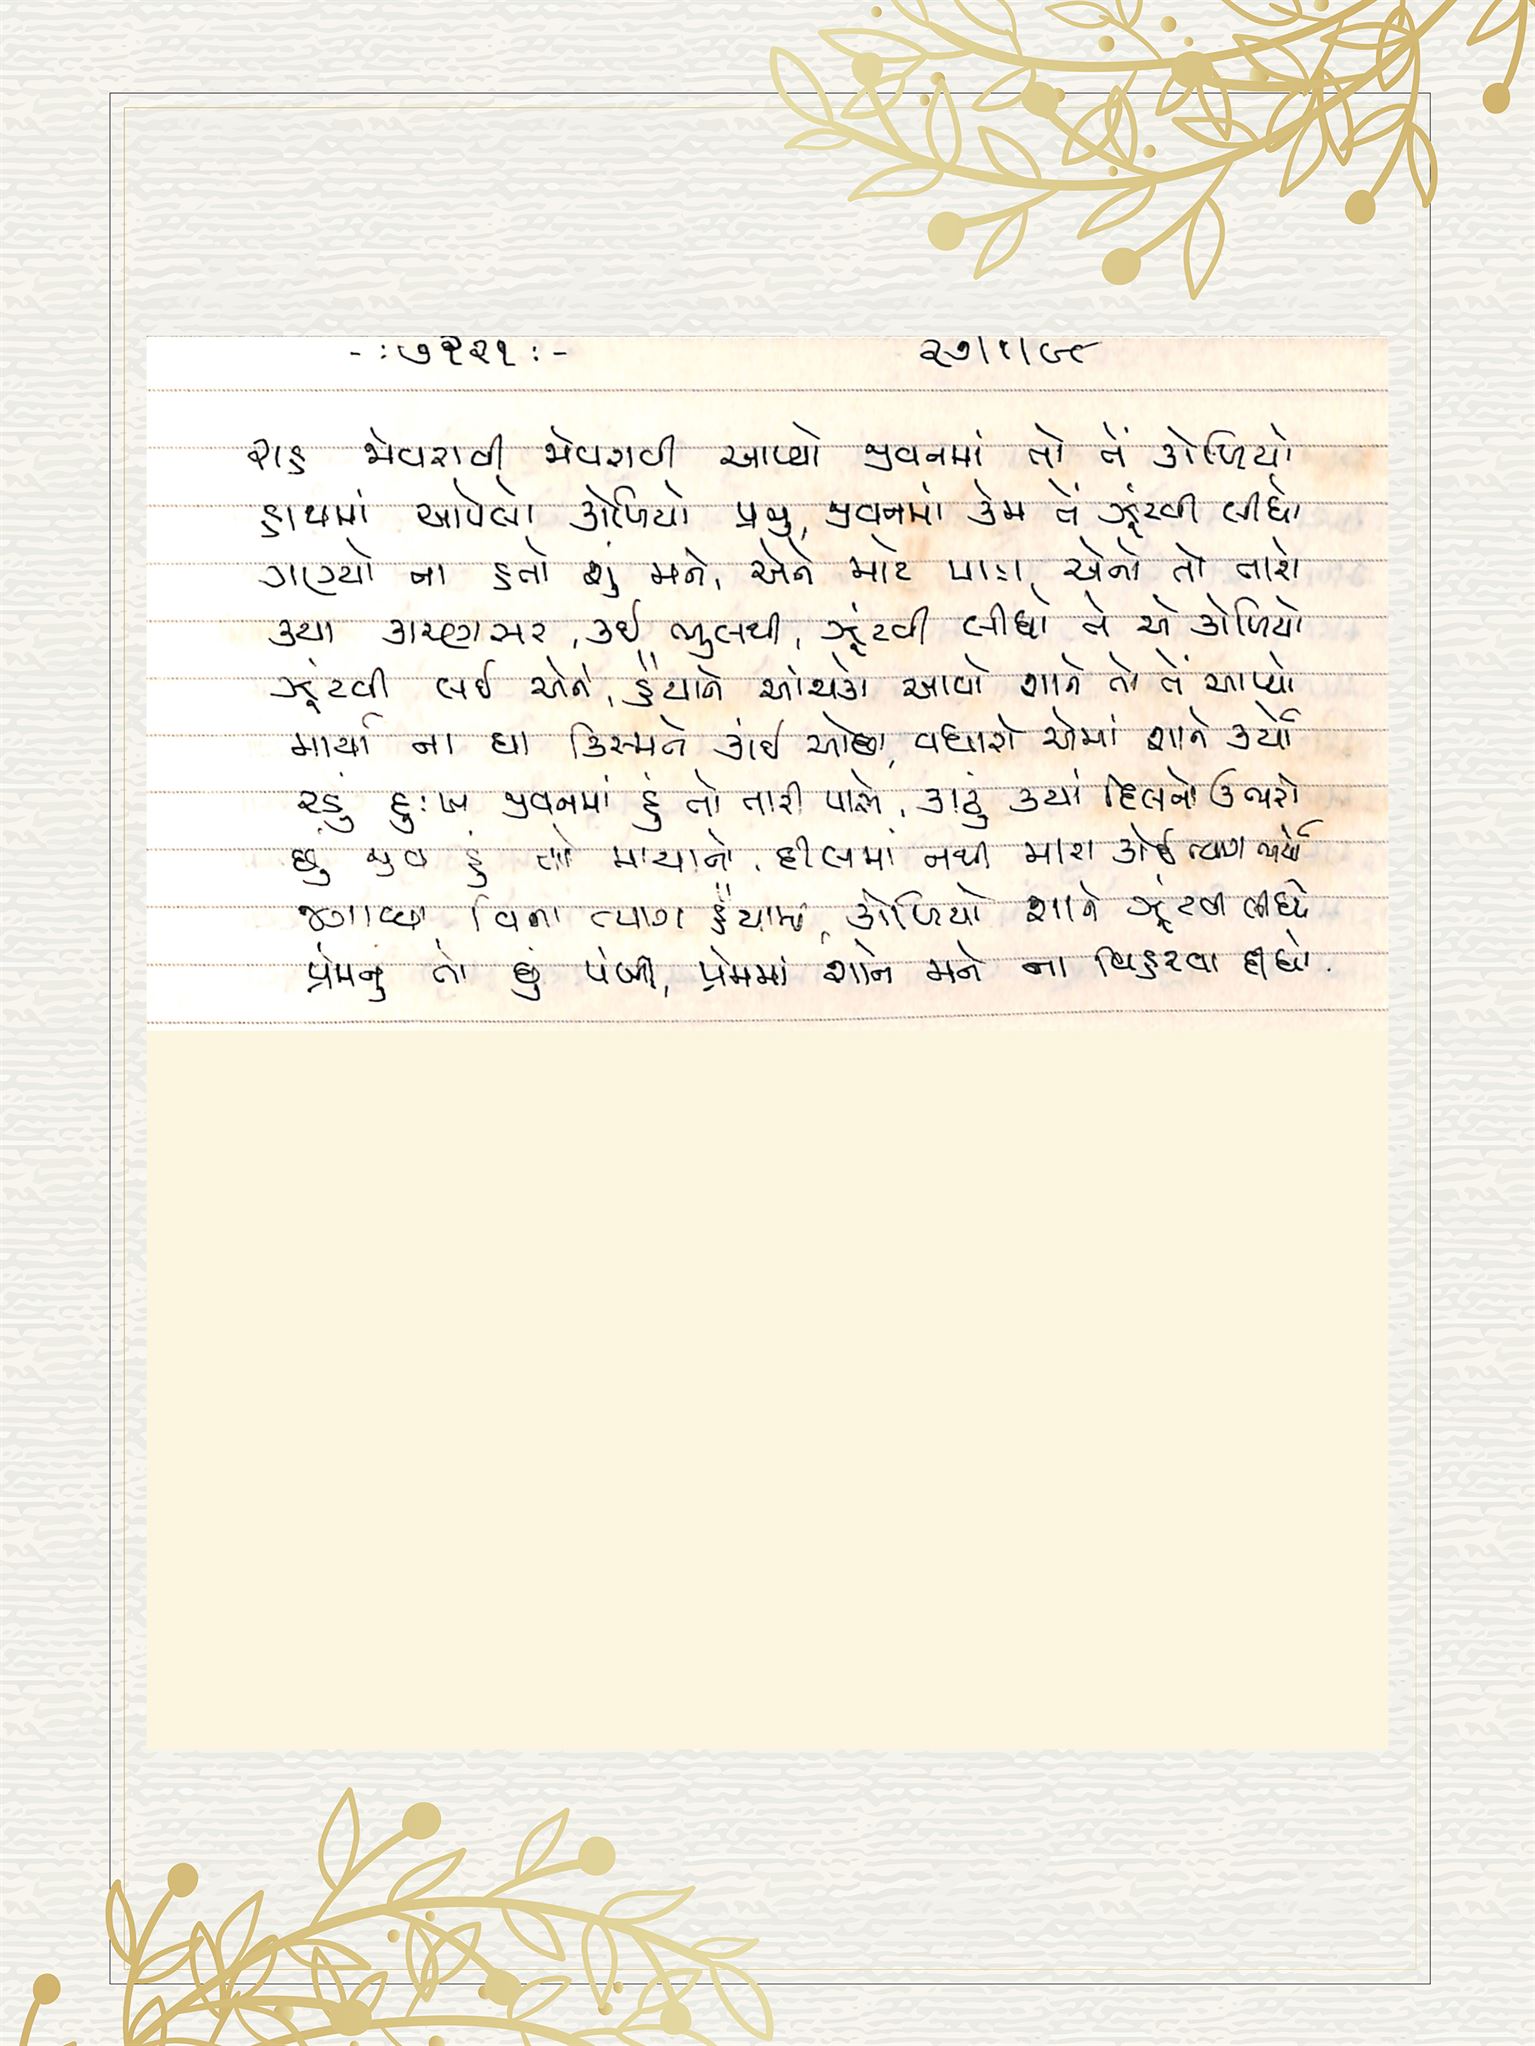 -:૭૧૨૧:- ૨૭/૧/૯૮
રાહ જોવરાવી જોવરાવી આપ્યો જીવનમાં તો તેં કોળિયો
હાથમાં આવેલો કોળિયો પ્રભુ, જીવનમાં કેમ તેં ઝૂંટવી લીધો
ગણ્યો ના હતો શું મને, એને માટે પાત્ર, એનો તો તારો
કયા કારણસર, કઈ ભુલથી, ઝૂંટવી લીધો તે એ કોળિયો
ઝૂંટવી લઈ એને, હૈયાને આંચકો આવો શાને તો તેં આપ્યો
માર્યા ના ઘા કિસ્મતે કાંઈ ઓછા, વધારો એમાં શાને કર્યો
રડું દુઃખ જીવનમાં હું તો તારી પાસે, કાઢું કયાં દિલનો ઉભરો
છું જીવ હું તો માયાનો, દીલમાં નથી મારા કોઈ ત્યાગ ભર્યો
જગાવ્યા વિના ત્યાગ હૈયામાં, કોળિયો શાને ઝૂંટવી લીધો
પ્રેમનું તો છું પંખી, પ્રેમમાં શાને મને ના વિહરવા દીધો.